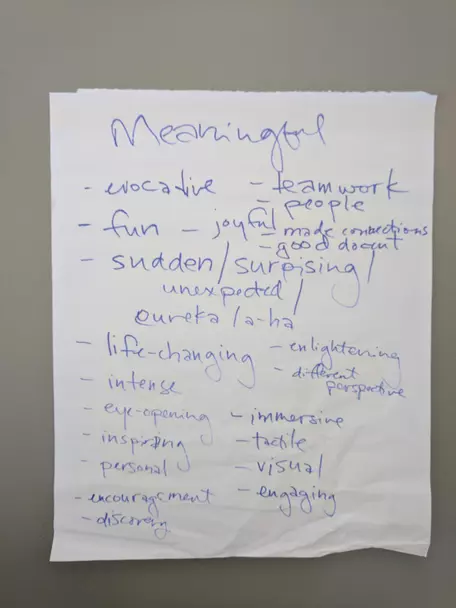 Meaningful
- evocative - teamwork
- people
- fun - joyful - made connections
- good docent
- sudden/surpising/
unexpected/
eureka/a-ha
- life-changing - enlightening
- different
perspective
- intense
- eye-opening - immersive
- inspiring - tactile
- personal - visual
- encouragement - engaging
- discovery